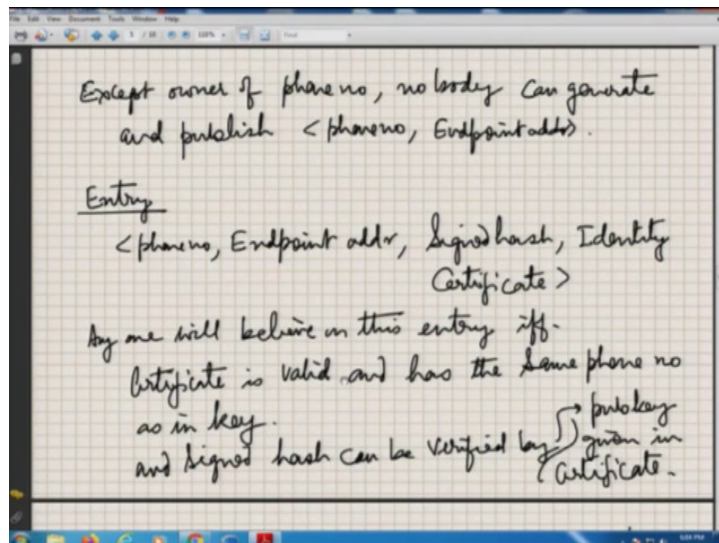 File Edit View Document Tools Window Help
5 / 18 118% Find
Except owner of phone no, nobody can generate
and publish <phoneno, Endpoint addr>.
Entry
<phoneno, Endpoint addr, Signed hash, Identity
Certificate>
Any one will believe in this entry iff.
Certificate is valid, and has the same phone no
as in key.
and signed hash can be verified by pub key
given in
Certificate.
5:04 PM